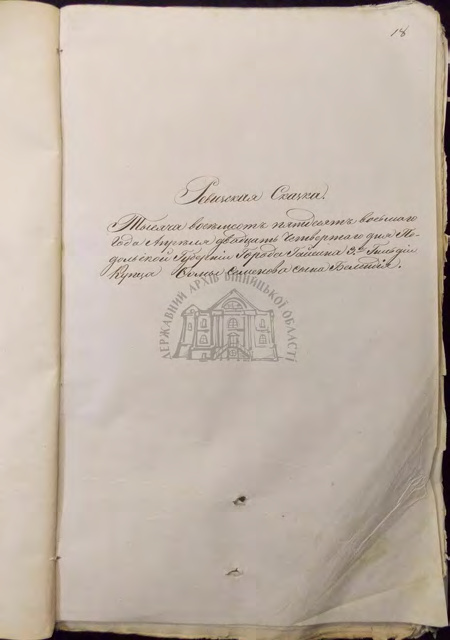 18
Ревизская Сказка.
Тысяча восемьсотъ пятьдесятъ восьмаго
года Апреля двадцать четвертаго дня По-
дольской Губерніи Города Гайсина 3й Гильдіи
Купца сына
ДЕРЖАВНИЙ АРХІВ ВІННИЦЬКОЇ ОБЛАСТІ